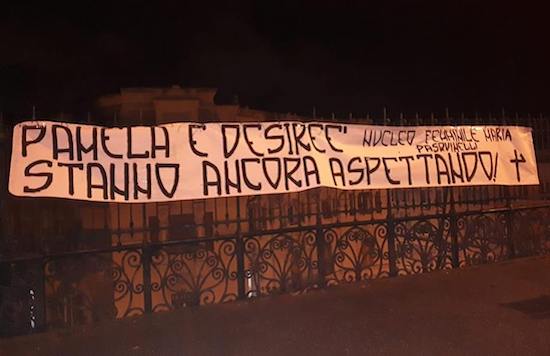 PAMELA E DESIREE' NUCLEO FEMMINILE MARIA
PASQUINELLI
STANNO ANCORA ASPETTANDO!